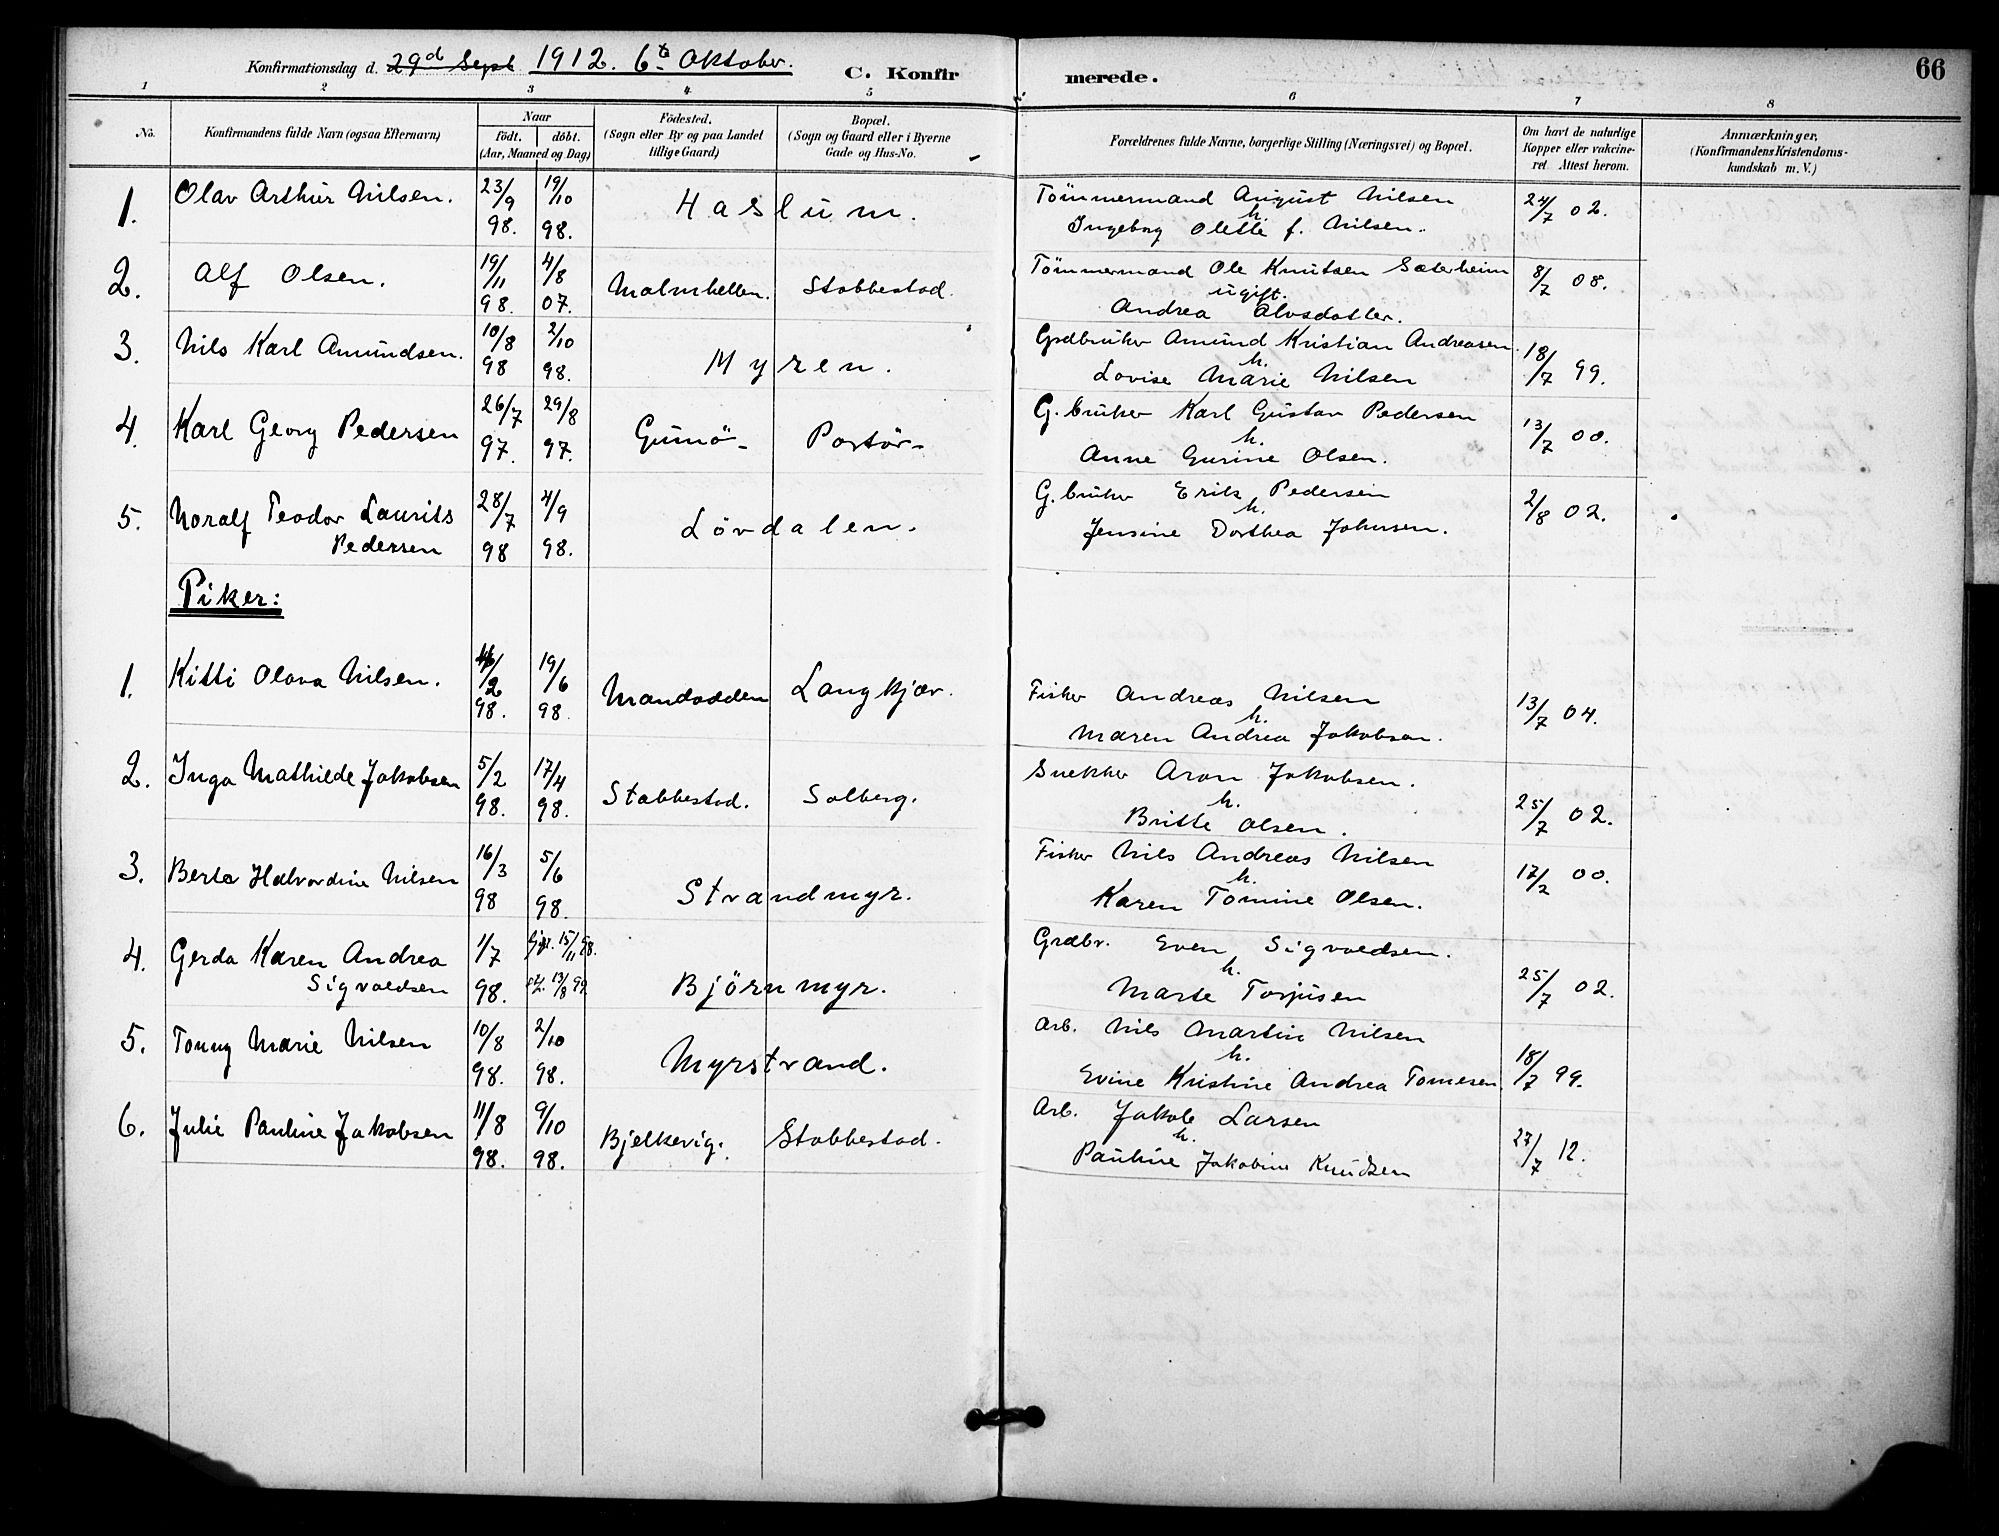 Konfirmationsdag d. 29d Sept 1912. 6te Oktober. C. Konfirmerede. 66
1 2 3 4 5 6 7 8
No. Konfirmandens fulde Navn (ogsaa Efternavn) Naar födt. döbt. (Aar, Maaned og Dag) Födested. (Sogn eller By og paa Landet tillige Gaard) Bopæl. (Sogn og Gaard eller i Byerne Gade og Hus-No. Forældrenes fulde Navne, borgerlige Stilling (Næringsvei) og Bopæl. Om havt de naturlige Kopper eller vakcineret. Attest herom. Anmærkninger, (Konfirmandens Kristendomskundskab m. V.)
1. Olav Arthur Nilsen. 23/9 98. 19/10 98. Haslum. Tömmermand August Nilsen 24/7 02.
h.
Ingeborg Olette f. Nilsen.
2. Alf Olsen. 19/11 98. 4/8 07. Malmhellen. Stabbestad. Tömmermand Ole Knutsen Sæterheim 8/7 08.
ugift.
Andrea Alvsdatter.
3. Nils Karl Amundsen. 10/8 98 2/10 98. Myren. Grdbruker Amund Kristian Andreasen. 18/7 99.
h.
Lovise Marie Nilsen
4. Karl Georg Pedersen 26/7 97. 29/8 97. Gumö- Portör- G. bruker Karl Gustav Pedersen 13/7 00.
h.
Anne Gurine Olsen.
5. Noralf Teodor Laurits 28/7 98 4/9 98. Lövdalen. G. bruker Erik Pedersen 2/8 02.
Pedersen h.
Jensine Dorthea Johnsen.
Piker:
1. Kitti Olava Nilsen. /2 98. 19/6 98. Mandsodden Langkjær. Fisker Andreas Nilsen 13/7 04.
h.
Maren Andrea Jakobsen.
2. Inga Mathilde Jakobsen 5/2 98. 17/4 98. Stabbestad. Solberg. Snekker Aron Jakobsen. 25/7 02.
h.
Britte Olsen.
3. Berta Halvordine Nilsen 16/3 98 5/6 98. Strandmyr. Fisker Nils Andreas Nilsen 17/2 00.
h.
Karen Tomine Olsen.
4. Gerda Karen Andrea 1/7 98. 15/11 98. 13/8 99 Björnmyr. Grdbr. Even Sigvaldsen. 25/7 02.
Sigvaldsen h.
Marte Torjusen
5. Tonny Marie Nilsen 10/8 98. 2/10 98. Myrstrand. Arb. Nils Martin Nilsen 18/7 99.
h.
Evine Kristine Andrea Tomesen
6. Julie Pauline Jakobsen 11/8 98. 9/10 98. Bjelkevig. Stabbestad. Arb. Jakob Larsen 27/7 12.
h.
Pauline Jakobine Knudsen